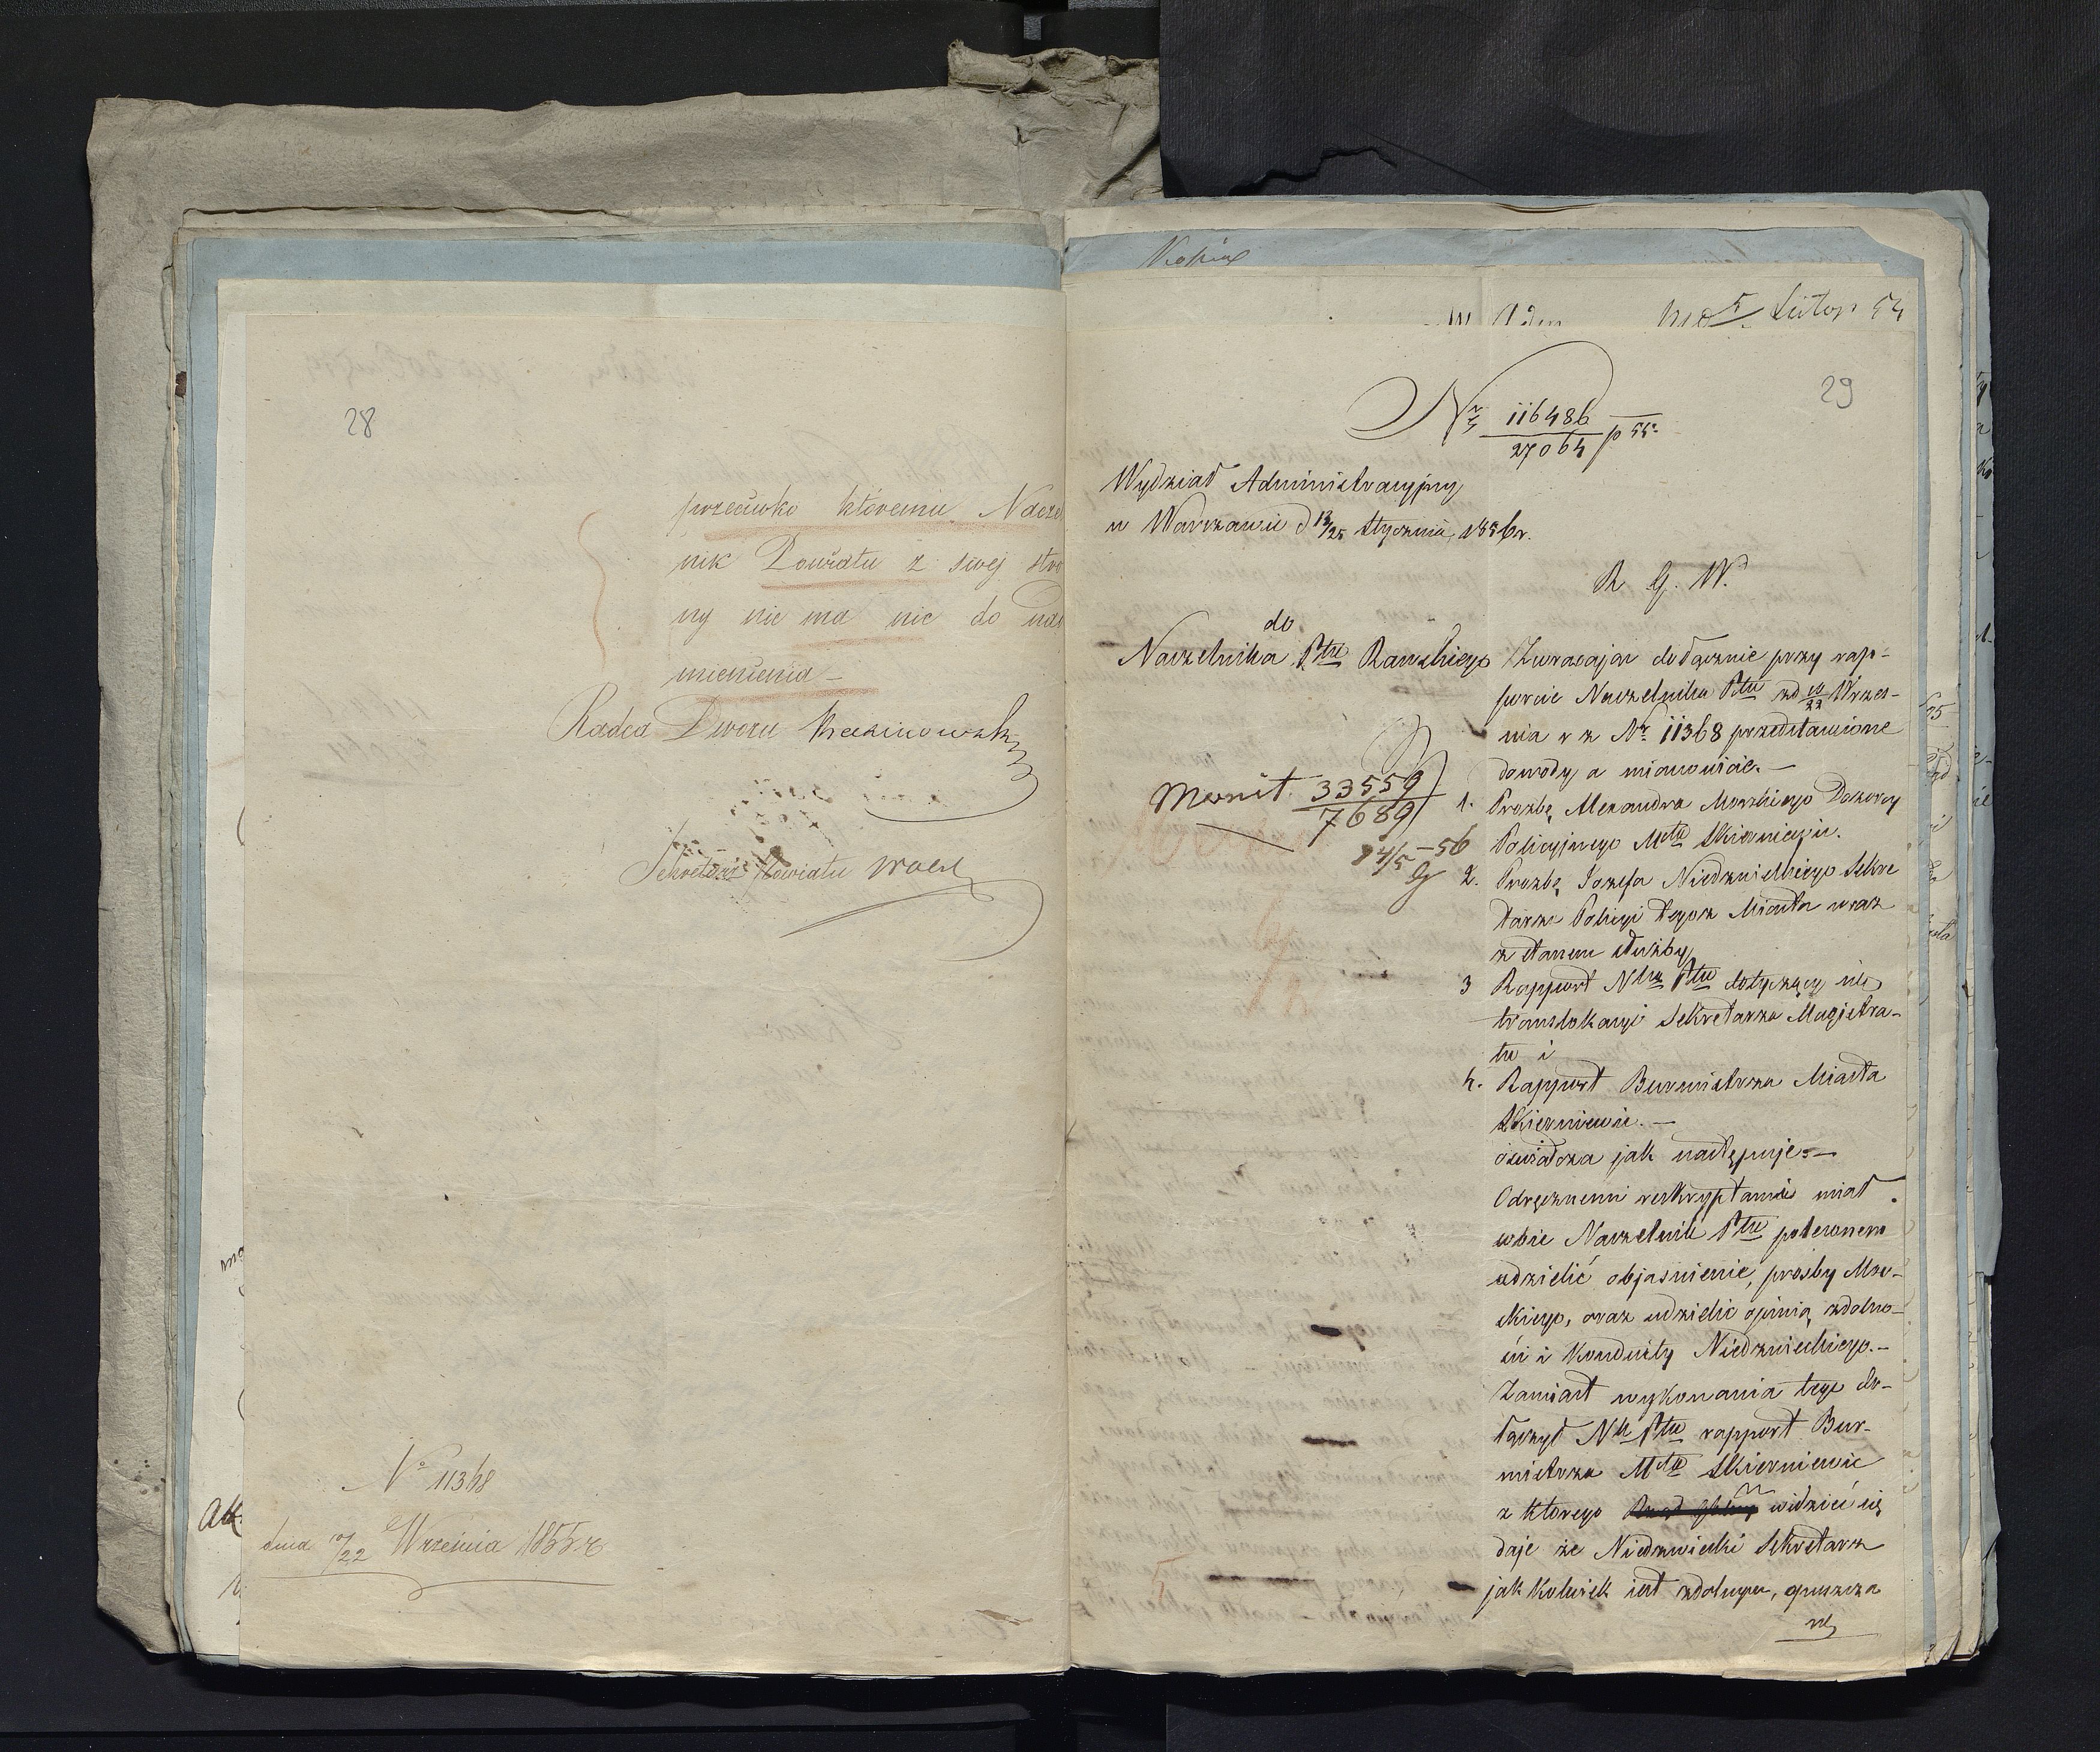 28
przeciwko któremu Naczel
nik Powiatu z swej stro
ny nie ma nic do nad
mienienia –
Radca Dworu
Sekretarz Powiatu
N° 11368
dnia 10/22 Września 1855 r
Kopia
29
Nr 116486/27064 p 55
Wydział Administracyjny
w Warszawie d 13/25 Stycznia 1856 r.
R. G. W.
do
Naczelnika Ptu Rawskiego
Monit. 33559/7689
24/5 – 56
Zwracając dołącznie przy rap-
porcie Naczelnika Ptu z d 10/22 Wrześ-
nia r z Nr 11368 przedstawione
dowody a mianowicie. –
1. Prozbę Alexandra Morskiego Dozorcy
Policyjnego Mta Skierniewic.
2. Prozbę Jozefa Niedzwieckiego Sekre
tarza Policyi tegoz Miasta wraz
z stanem służby
3 Rapport Nka Ptu dotyczący się
translokacyi Sekretarza Magistra-
tu i
4. Rapport Burmistrza Miasta
Skierniewic. –
oswiadcza jak następuje: –
Odręcznemi reskryptami miał
sobie Naczelnik Ptu poleconem
udzielić objasnienie, prosby Mor-
skiego, oraz udzielic opinią zdolno-
ści i Konduity Niedzwieckiego. –
Zamiast wykonania tego do-
łączył Nk Ptu rapport Bur-
mistrza Mta Skierniewic
z ktorego widzieć się
daje że Niedzwiecki Sekretarz
jak kolwiek jest zdolnym, opuszcza